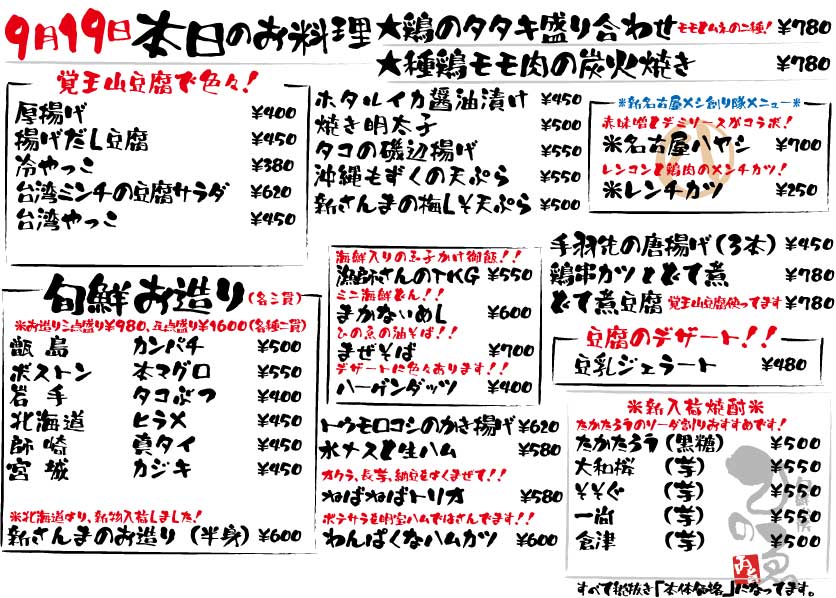 9月19日 本日のお料理
★鶏のタタキ盛り合わせ モモとムネの二種! ¥780
★種鶏モモ肉の炭火焼き ¥780
覚王山豆腐で色々!
厚揚げ ¥400
揚げだし豆腐 ¥450
冷やっこ ¥380
台湾ミンチの豆腐サラダ ¥620
台湾やっこ ¥450
ホタルイカ醤油漬け ¥450
焼き明太子 ¥500
タコの磯辺揚げ ¥550
沖縄もずくの天ぷら ¥550
新さんまの梅しそ天ぷら ¥500
※新名古屋メシ創り隊メニュー※
赤味噌とデミソースがコラボ!
※名古屋ハヤシ ¥700
レンコンと鶏肉のメンチカツ!
※レンチカツ ¥250
旬鮮お造り(各二貫)
※お造り三点盛り¥980、五点盛り¥1600(各種二貫)
甑島 カンパチ ¥500
ボストン 本マグロ ¥550
岩手 タコぶつ ¥400
北海道 ヒラメ ¥450
師崎 真タイ ¥450
宮城 カジキ ¥450
※北海道より、新物入荷しました!
新さんまのお造り(半身) ¥600
海鮮入りの玉子かけ御飯!!
漁師さんのTKG ¥550
ミニ海鮮どん!!
まかないめし ¥600
ひの魚の油そば!!
まぜそば ¥700
デザートに色々あります!!
ハーゲンダッツ ¥400
トウモロコシのかき揚げ ¥620
水ナスと生ハム ¥580
オクラ、長芋、納豆をよくまぜて!!
ねばねばトリオ ¥580
ポテサラを明宝ハムではさんでます!!
わんぱくなハムカツ ¥600
手羽先の唐揚げ(3本) ¥450
鶏串カツとどて煮 ¥780
どて煮豆腐 覚王山豆腐使ってます ¥780
豆腐のデザート!!
豆乳ジェラート ¥480
※新入荷焼酎※
たかたろうのソーダ割りおすすめです!
たかたろう(黒糖) ¥500
大和桜(芋) ¥550
そそぐ(芋) ¥550
一尚(芋) ¥500
倉津(芋) ¥500
すべて税抜き「本体価格」になってます。